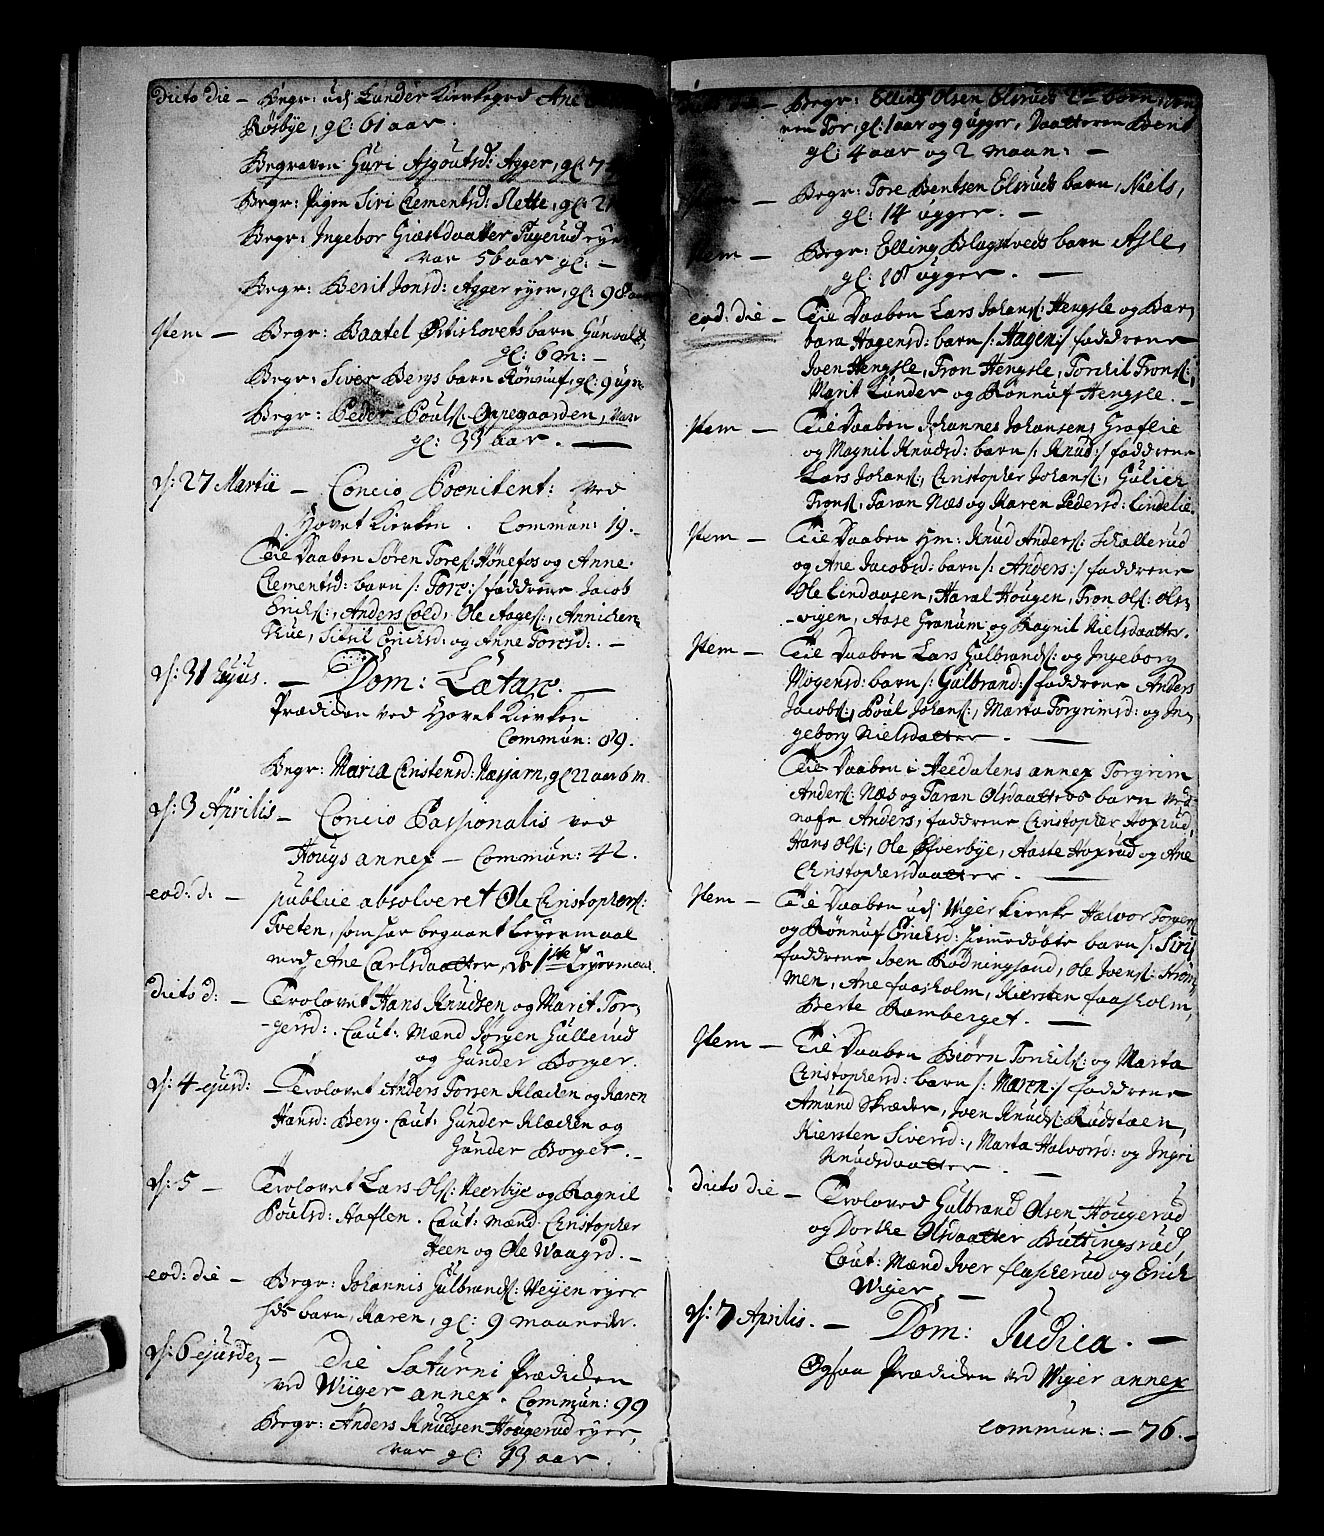 dicto die – Begr: ud: Lunder Kierkegrd Ane
Røsbye, gl: 61 aar.
Begraven Guri Asgoutsd: Agger, gl: 7
Begr: Pigen Siri Clementsd: Slette, gl: 2
Begr: Ingebor Giæstdaatter Pugerud eyer
var 56 aar gl: –
Begr: Berit Jonsd: Agger eyer, gl: 98 aar
Item – Begr: Baatel Østishovets barn Gunvald,
gl: 6 m: –
Begr: Siver Bergs barn Rønnuf, gl: 9 ugr.
Begr: Peder Pouls: Oppegaarden, var
gl: 33 aar. –
d: 27 Martii – Concio Poenitent: ved
Hovet Kierken. Commun: 19.
Til Daaben Søren Tores: Hønefos og Anne
Clementsd: barn /: Tore :/ faddrene Jacob
Ericks:, Anders Cold, Ole Aages:, Annichen
Thue, Sissil Ericksd: og Anne Toresd: –
d: 31 Ejus. – Dom: Lætare. –
Prædicken ved Hovet Kierken
Commun: 89.
Begr: Maria Christensd: Næsjarn, gl 22 aar 6 m.
d: 3 Aprilis – Concio Passionalis ved
Hougs annex – Commun: 42.
eod: d: – publice absolveret Ole Christophers:
Tveten, som har begaaet Leyermaal
med Ane Carlsdaatter, de 1ste Leyermaal.
dicto d: – Trolovet Hans Knudsen og Marit Tor-
gersd: Caut: Mænd Jørgen Gullerud
og Gunder Borger.
d: 4 ejusd: – Trolovet Anders Torsen Klæcken og Karen
Hansd: Berg. Caut: Gunder Klæcken og
Gunder Borger. –
d: 5 – Trolovet Lars Ols: Veerbye og Ragnil
Poulsd: Haflen. Caut: mænd Christopher
Heen og Ole Waagrd. –
eod: die – Begr: Johannis Gulbrands: Veyen eyer
hds barn, Karen, gl: 9 maaneder.
d: 6 ejusdem – die Saturni Prædicken
ved Wiiger annex. Commun: 99
Begr: Anders Knudsen Hougerud eyer,
var gl: 83 aar.
dicto die – Begr: Elling Olsen Elsruds 2de børn,
nen Tor, gl: 1 aar og 9 ugger, Daatteren Berit
gl: 4 aar og 2 maan: –
Item – Begr: Tore Bentsen Elsruds barn, Niels,
gl: 14 ugger. –
Item – Begr: Elling Blagstveds barn Asle,
gl: 18 ugger. –
eod: die – Til Daaben Lars Johans: Hengsle og Bar-
bara Hagensd: barn /: Hagen :/ faddrene
Iven Hengsle, Tron Hengsle, Torckil Trons:,
Marit Lunder og Rønnuf Hengsle. –
Item – Til Daaben Johannes Johansens Graflie
og Magnil Knudsd: barn /: Knud :/ faddrene
Lars Johans:, Christopher Johans:, Gulick
Trons:, Taran Næs og Karen Pedersd: Lindelie.
Item – Til Daaben Hm: Knud Anders: Skollerud
og Ane Jacobsd: barn /: Anders :/ faddrene
Ole Lindaasen, Haral Hougen, Tron Ols: Ols-
vigen, Aase Granum og Ragnil Nielsdaatter.
Item – Til Daaben Lars Gulbrands: og Ingeborg
Mogensd: barn /: Gulbrand :/ faddrene Anders
Jacobs:, Poul Johans:, Marta Torgrimsd: og In-
geborg Nielsdaatter. –
Til Daaben i Heedalens annex Torgrim
Anders: Næs og Taran Olsdaatters barn ved
nafn Anders, faddrene Christopher Hoxrud,
Hans Ols:, Ole Øfverbye, Aaste Hoxrud og Ane
Christophersdaatter. –
Item – Til Daaben ud: Wiger kierke Halvor Torgers:
og Rønnuf Ericksd: hiemmedøbte barn /: Siri
faddrene Iven Rodningsand, Ole Ivens: Strøm-
men, Ane faasholm, Kiersten faasholm,
Berte Ramberget. –
Item – Til Daaben Biørn Torckils: og Marta
Christophersd: barn /: Maren :/ faddrene
Amund Skræder, Iven Knuds: Rudstøen,
Kiersten Siversd:, Marta Halvorsd: og Ingri
Knudsdaatter. –
dicto die – Troloved Gulbrand Olsen Hougerud
og Dorthe Olsdaatter Buttingsrud,
Caut: Mænd Iver flaskerud og Erick
Wiger. –
d: 7 Aprilis. – Dom: Judica. –
Ogsaa Prædicken ved Wiger annex
Commun: – 76. –